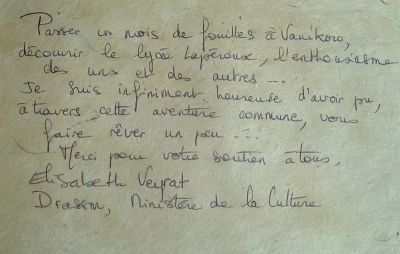 Passer un mois de fouilles à Vanikoro,
découvrir le lycée Lapérouse, l'enthousiasme
des uns et des autres ...
Je suis infiniment heureuse d'avoir pu,
à travers cette aventure commune, vous
faire rêver un peu ...
Merci pour votre soutien à tous,
Elisabeth Veyrat
Drassm, Ministère de la Culture